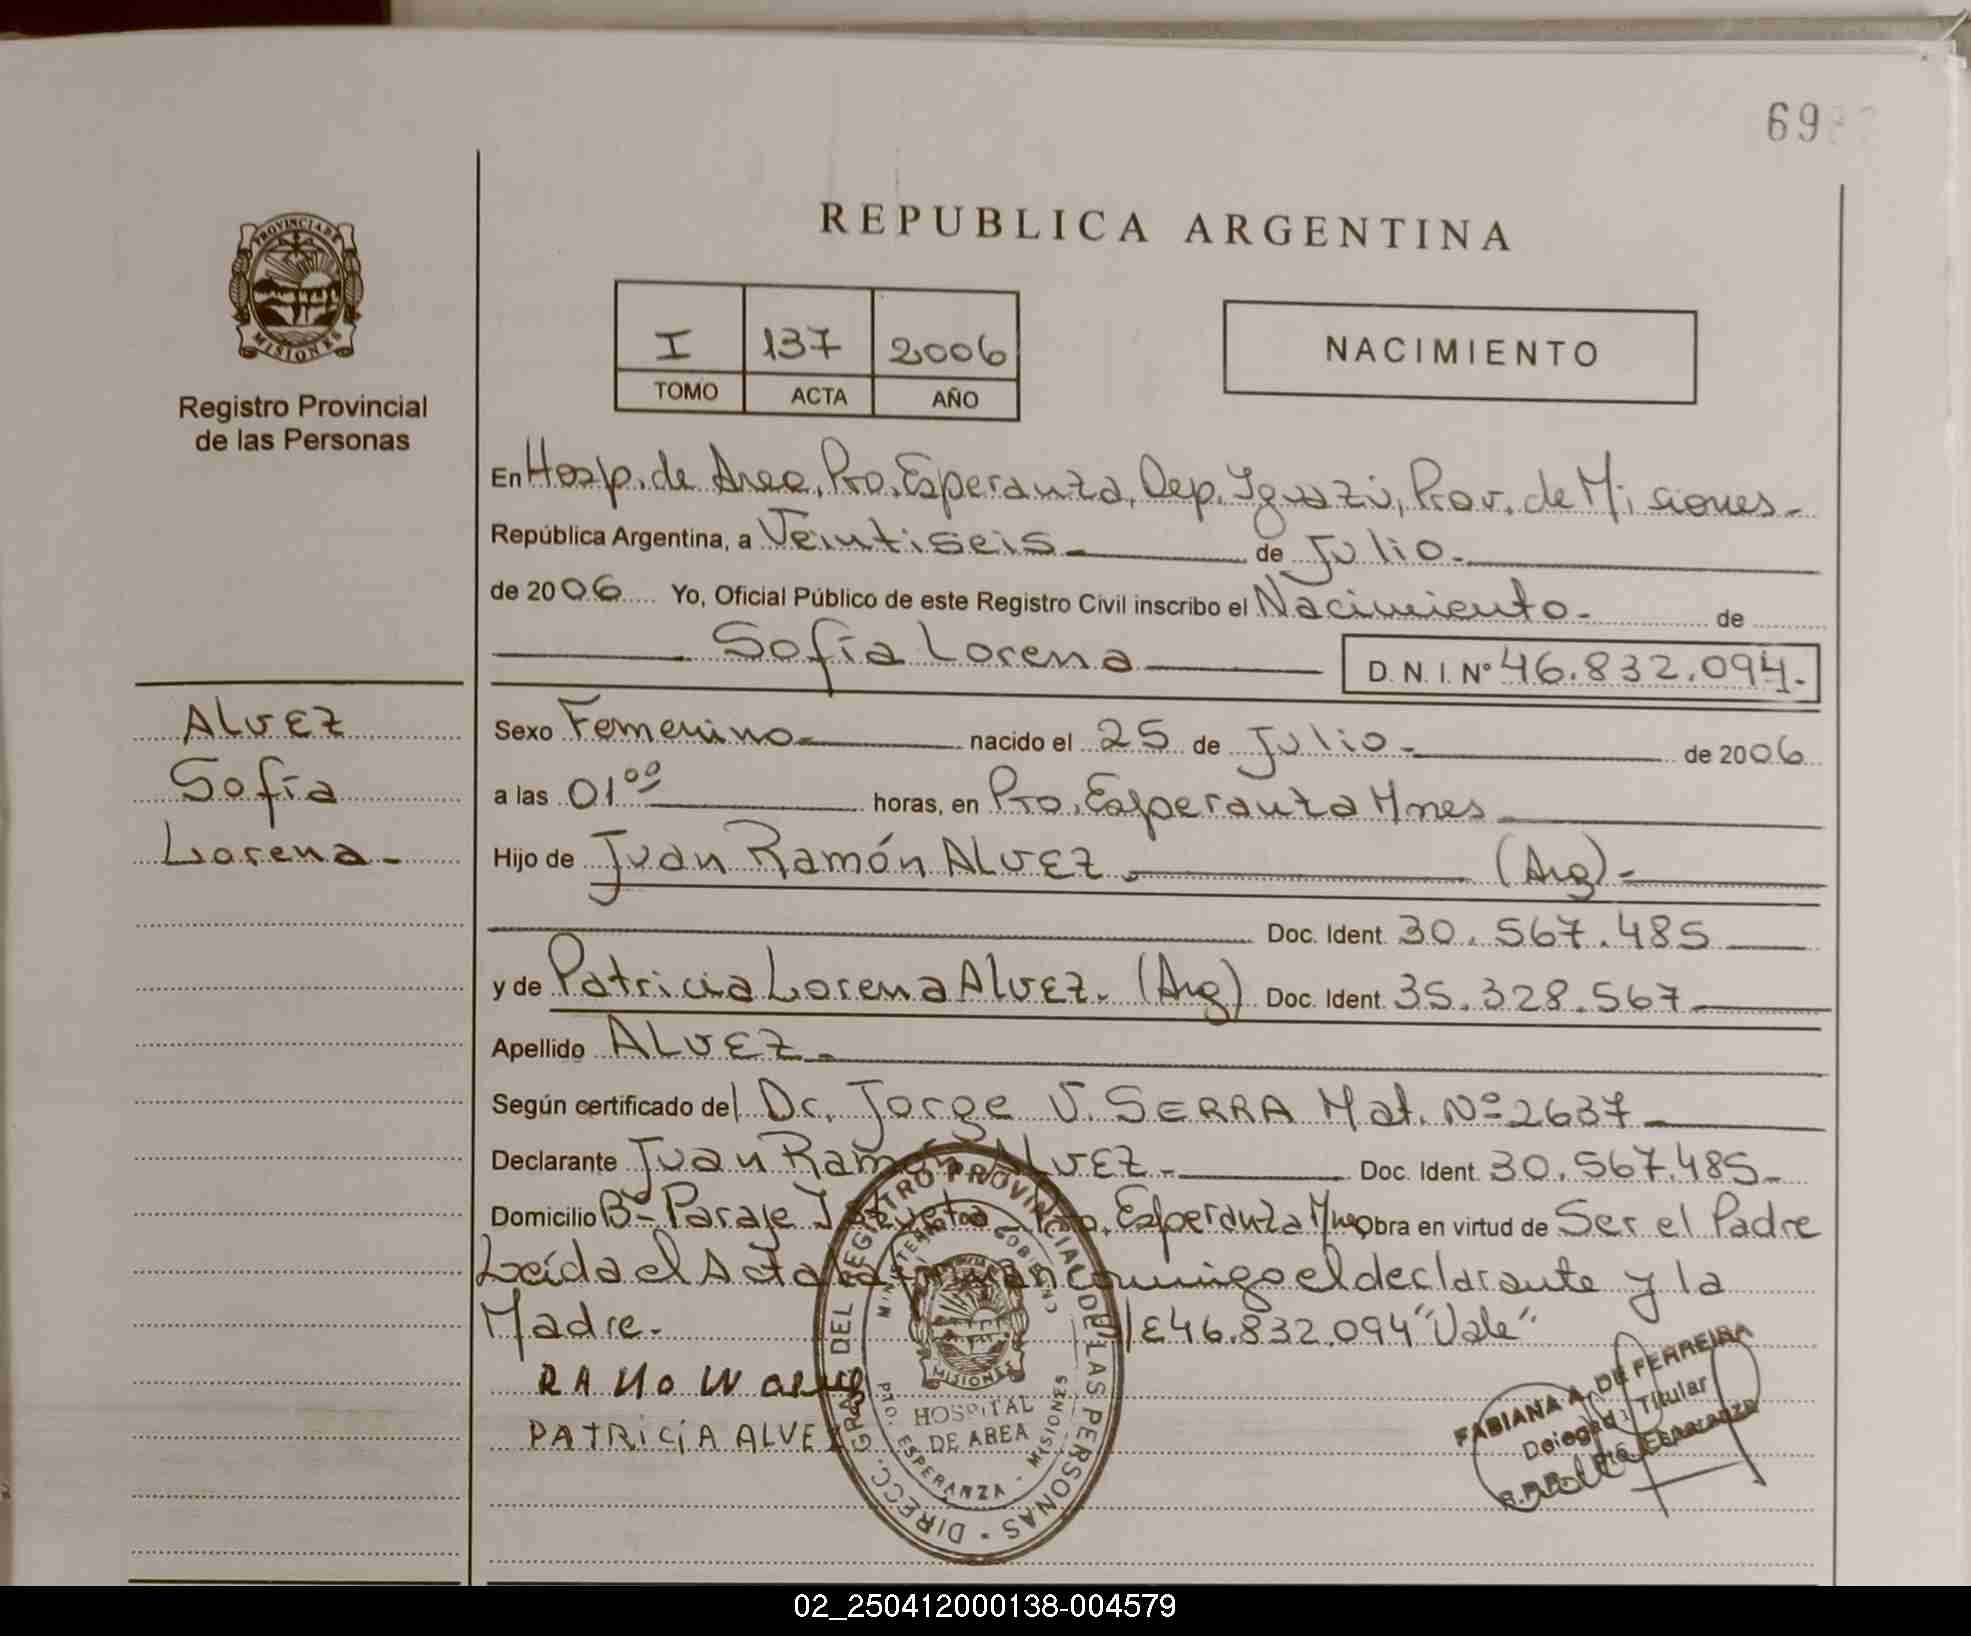 69
REPUBLICA ARGENTINA
PROVINCIA DE MISIONES
Registro Provincial
de las Personas
I 137 2006
TOMO ACTA AÑO
NACIMIENTO
En Hosp. de Area, Pto. Esperanza, Dep. Iguazú, Prov. de Misiones-
República Argentina, a Veintiseis- de Julio.-
de 2006 Yo, Oficial Público de este Registro Civil inscribo el Nacimiento- de
Sofía Lorena D.N.I. Nº 46.832.094.-
ALVEZ
Sofía
Lorena-
Sexo Femenino- nacido el 25 de Julio.- de 2006
a las 01⁰⁰ horas, en Pto. Esperanza Mnes
Hijo de Juan Ramón ALVEZ.- (Arg).-
Doc. Ident. 30.567.485
y de Patricia Lorena Alvez. (Arg) Doc. Ident. 35.328.567
Apellido ALVEZ.-
Según certificado del Dr. Jorge V. SERRA Mat. Nº 2637
Declarante Juan Ramón ALVEZ.- Doc. Ident. 30.567.485-
Domicilio Bº Paraje Pto. Esperanza Mnes Obra en virtud de Ser el Padre
Leída el Acta la firman conmigo el declarante y la
Madre.- /E 46.832.094 "Vale"
RAMON
PATRICIA ALVEZ
DIRECC. GRAL DEL REGISTRO PROVINCIAL DE LAS PERSONAS
MINISTERIO DE GOBIERNO
MISIONES
HOSPITAL
DE AREA
PTO. ESPERANZA - MISIONES
FABIANA A. DE FERREIRA
Delegada Titular
R.P.P. Pto. Esperanza
02_250412000138-004579